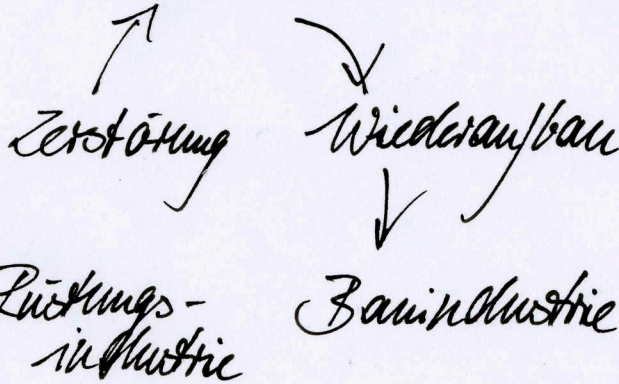 Zerstörung Wiederaufbau
Rüstungs- Bauindustrie
industrie